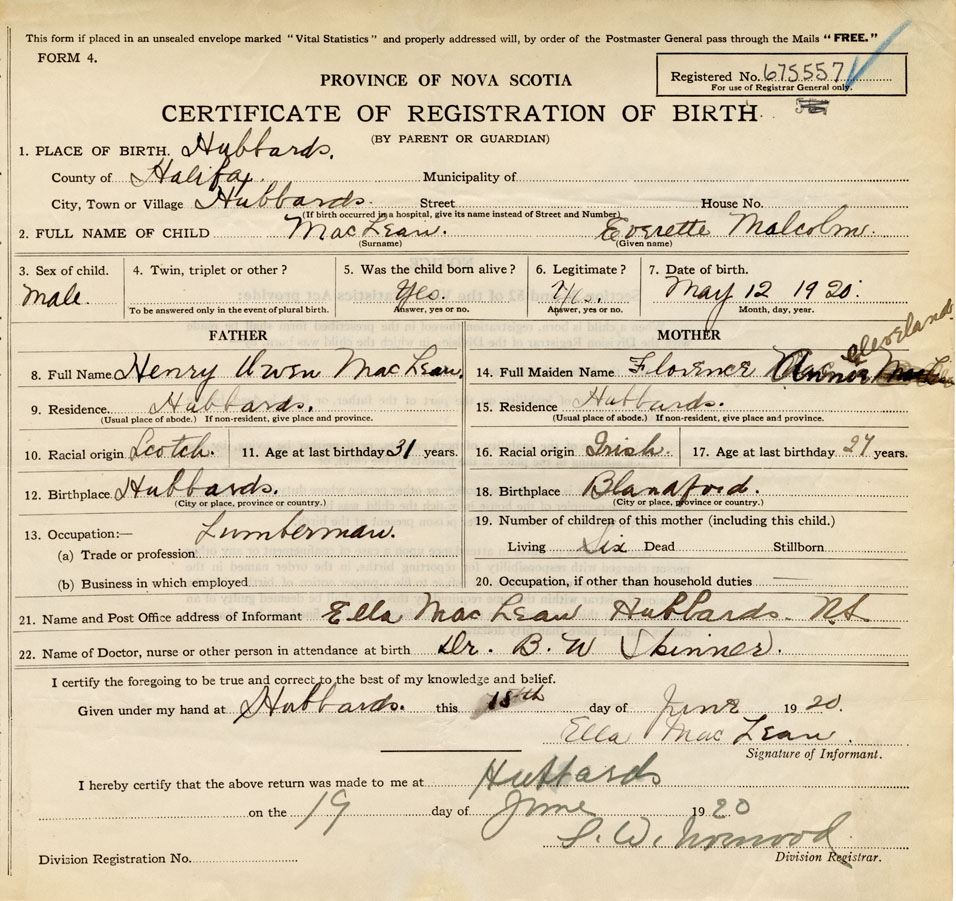 This form if placed in an unsealed envelope marked "Vital Statistics" and properly addressed will, by order of the Postmaster General pass through the Mails "FREE."
FORM 4.
Registered No. 675557
For use of Registrar General only.
PROVINCE OF NOVA SCOTIA
CERTIFICATE OF REGISTRATION OF BIRTH
(BY PARENT OR GUARDIAN)
1. PLACE OF BIRTH. Hubbards.
County of Halifax. Municipality of
City, Town or Village Hubbards. Street House No.
(If birth occurred in a hospital, give its name instead of Street and Number)
2. FULL NAME OF CHILD MacLean. Everette Malcolm.
(Surname) (Given name)
3. Sex of child. 4. Twin, triplet or other? 5. Was the child born alive? 6. Legitimate? 7. Date of birth.
Male. Yes. Yes. May 12 1920.
To be answered only in the event of plural birth. Answer, yes or no. Answer, yes or no. Month, day, year.
FATHER MOTHER
Cleveland
8. Full Name Henry Owen MacLean. 14. Full Maiden Name Florence Annie
9. Residence. Hubbards. 15. Residence Hubbards.
(Usual place of abode.) If non-resident, give place and province. (Usual place of abode.) If non-resident, give place and province.
10. Racial origin Scotch. 11. Age at last birthday 31 years. 16. Racial origin Irish. 17. Age at last birthday 27 years.
12. Birthplace Hubbards. 18. Birthplace Blandford.
(City or place, province or country.) (City or place, province or country.)
13. Occupation:— Lumberman. 19. Number of children of this mother (including this child.)
(a) Trade or profession Living Six Dead Stillborn
(b) Business in which employed 20. Occupation, if other than household duties —
21. Name and Post Office address of Informant Ella MacLean Hubbards. N.S.
22. Name of Doctor, nurse or other person in attendance at birth Dr. B. W Skinner.
I certify the foregoing to be true and correct to the best of my knowledge and belief.
Given under my hand at Hubbards. this 18th day of June 1920.
Ella MacLean.
Signature of Informant.
I hereby certify that the above return was made to me at Hubbards
on the 19 day of June 1920
S. W. Norwood
Division Registration No. Division Registrar.